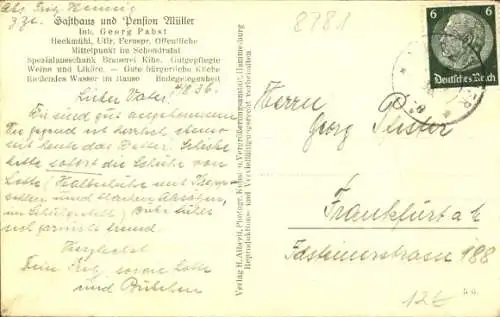 Abs. Fritz Hennig
z. Zt.
Gasthaus und Pension Müller
Inh. Georg Pabst
Heckmühl, Utfr. Fernspr. Öffentliche
Mittelpunkt im Schondratal
Spezialausschank Brauerei Kihn. Gutgepflegte
Weine und Liköre. — Gute bürgerliche Küche
Fließendes Wasser im Hause Badegelegenheit
Lieber Vater! 4/8.36.
Wir sind gut angekommen
Die Gegend ist herrlich ebenso
ist heute das Wetter. Schicke
bitte sofort die Schuhe von
Lotte (Halbschuhe mit
sohlen und flachen Absätzen,
im ) Bruder
ist garnicht fremd
Herzlichst
Dein Fritz, sowie Lotte
und Bübchen
Verlag H. Alberti, Photogr. Kunst- u. Vergrößerungsanstalt, Hammelburg
Reproduktions- und Vervielfältigungsrecht vorbehalten
8781
6 6
Deutsches Reich
Herrn
Georg Pfister
Frankfurt a/M
Fasternerstrasse 188
12€